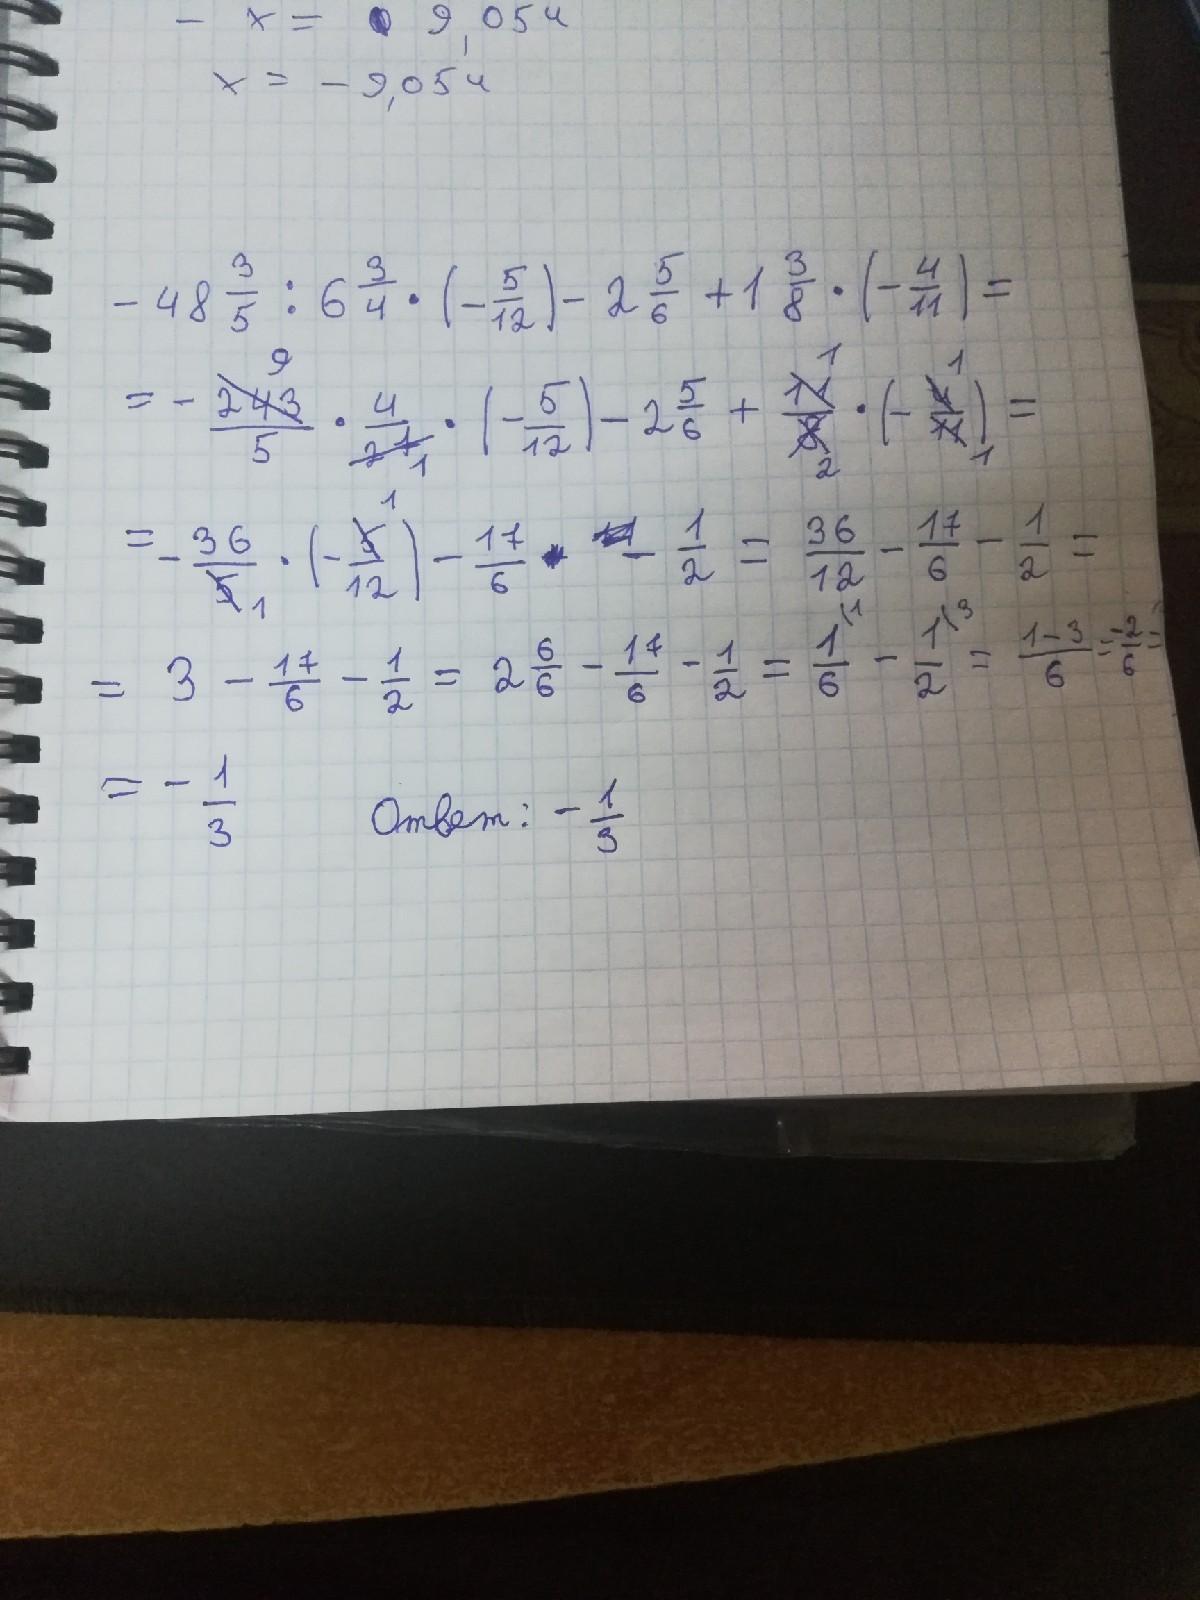 - x = 9,054
x = - 9,054
- 48 3/5 : 6 3/4 · (- 5/12) - 2 5/6 + 1 3/8 · (- 4/11) =
= - 243/5 9 · 4/27 1 · (- 5/12) - 2 5/6 + 11/8 1 2 · (- 4/11) 1 1 =
= - 36/5 1 · (- 5/12) 1 - 17/6 - 1/2 = 36/12 - 17/6 - 1/2 =
= 3 - 17/6 - 1/2 = 2 6/6 - 17/6 - 1/2 = 1/6 \1 - 1/2 \3 = 1-3/6 = -2/6 =
= - 1/3 Ответ: - 1/3